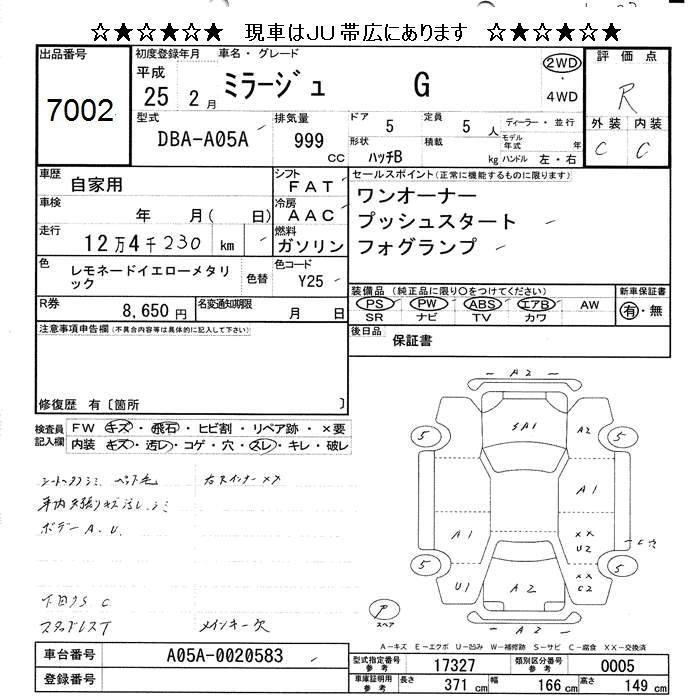 ☆★☆★☆★ 現車はJU帯広にあります ☆★☆★☆★
出品番号
7002
初度登録年月 車名・グレード
平成 25 2月 ミラージュ G
2WD ・ 4WD
評価点
R
型式 DBA-A05A
排気量 999 CC
ドア 5 定員 5 人
形状 ハッチB 積載 kg
ディーラー・並行
モデル年式 年
ハンドル 左・右
外装 内装
C C
車歴 自家用
シフト FAT
車検 年 月( 日)
冷房 AAC
走行 12万4千230 km
燃料 ガソリン
色 レモネードイエローメタリック 色替
色コード Y25
R券 8,650円
名変通知期限 月 日
セールスポイント(正常に機能するものに限ります)
ワンオーナー
プッシュスタート
フォグランプ
装備品(純正品に限り○をつけてください)
PS PW ABS エアB AW
SR ナビ TV カワ
新車保証書
有・無
後日品 保証書
注意事項申告欄(不具合内容等は具体的に記入して下さい)
修復歴 有〔箇所 〕
検査員記入欄
FW キズ・飛石・ヒビ割・リペア跡・×要
内装 キズ・汚レ・コゲ・穴・スレ・キレ・破レ
ボデーA.U.
下回りS C
スタッドレスT メインキー欠
A2
SA1
A2
5
5
A1
A1
XX
U2
XX
C2
U1
A2
5
5
A2
スペア
A-キズ E-エクボ U-凹み W-補修跡 S-サビ C-腐食 XX-交換済
車台番号 A05A-0020583
登録番号
型式指定番号 参考 17327
類別区分番号 参考 0005
車庫証明用 参考 長さ 371 cm 幅 166 cm 高さ 149 cm